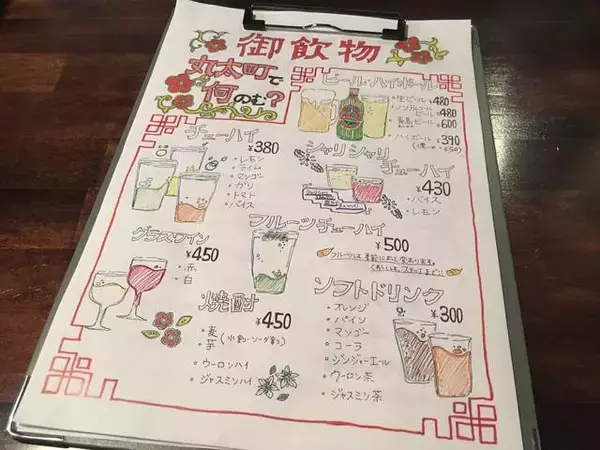 御飲物
丸太町で
何のむ?
ビール・ハイボール
・生ビール ¥480
・ノンアルコールビール ¥480
・青島ビール ¥600
・ハイボール ¥390
チューハイ
¥380
・レモン
・ライム
・マンゴー
・ガリ
・トマト
・バイス
シャリシャリ
チューハイ
¥430
・バイス
・レモン
グラスワイン
¥450
・赤
・白
フルーツチューハイ
¥500
焼酎
¥450
・麦
・芋 (水割・ソーダ割)
・ウーロンハイ
・ジャスミンハイ
ソフトドリンク
¥300
・オレンジ
・パイン
・マンゴー
・コーラ
・ジンジャーエール
・ウーロン茶
・ジャスミン茶